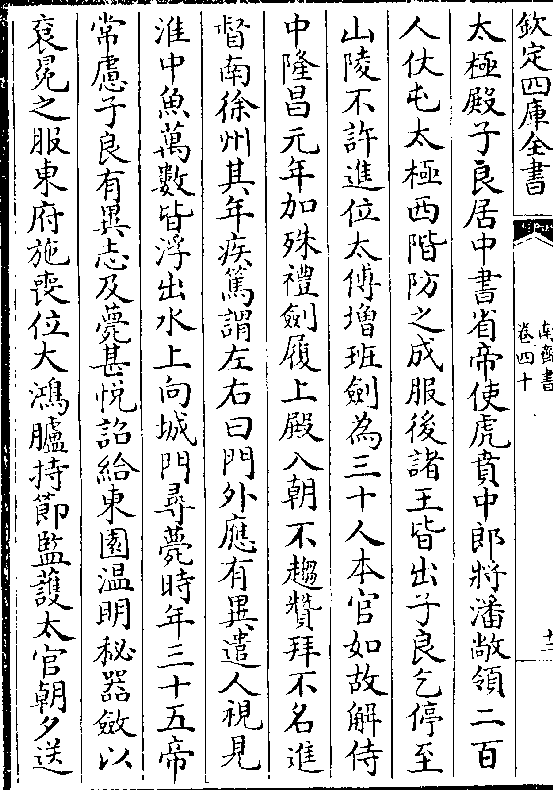 欽定四庫全書
南齊書
卷四十
十三
太極殿子良居中書省帝使虎賁中郎將潘敞領二百
人仗屯太極西階防之成服後諸王皆出子良乞停至
山陵不許進位太傅增班劍為三十人本官如故解侍
中隆昌元年加殊禮劍履上殿入朝不趨贊拜不名進
督南徐州其年疾篤謂左右曰門外應有異遣人視見
淮中魚萬數皆浮出水上向城門尋薨時年三十五帝
常慮子良有異志及薨甚悅詔給東園温明秘器斂以
衮冕之服東府施喪位大鴻臚持節監護太官朝夕送